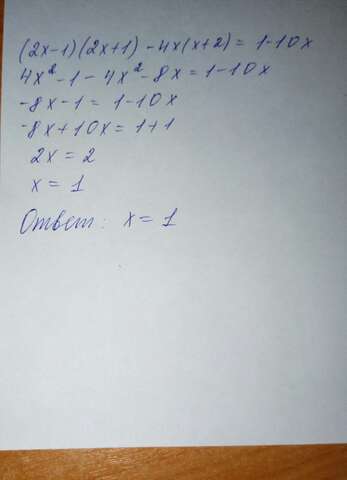 (2x-1)(2x+1) - 4x(x+2) = 1-10x
4x² - 1 - 4x² - 8x = 1-10x
-8x - 1 = 1-10x
-8x+10x = 1+1
2x = 2
x = 1
Ответ: x = 1